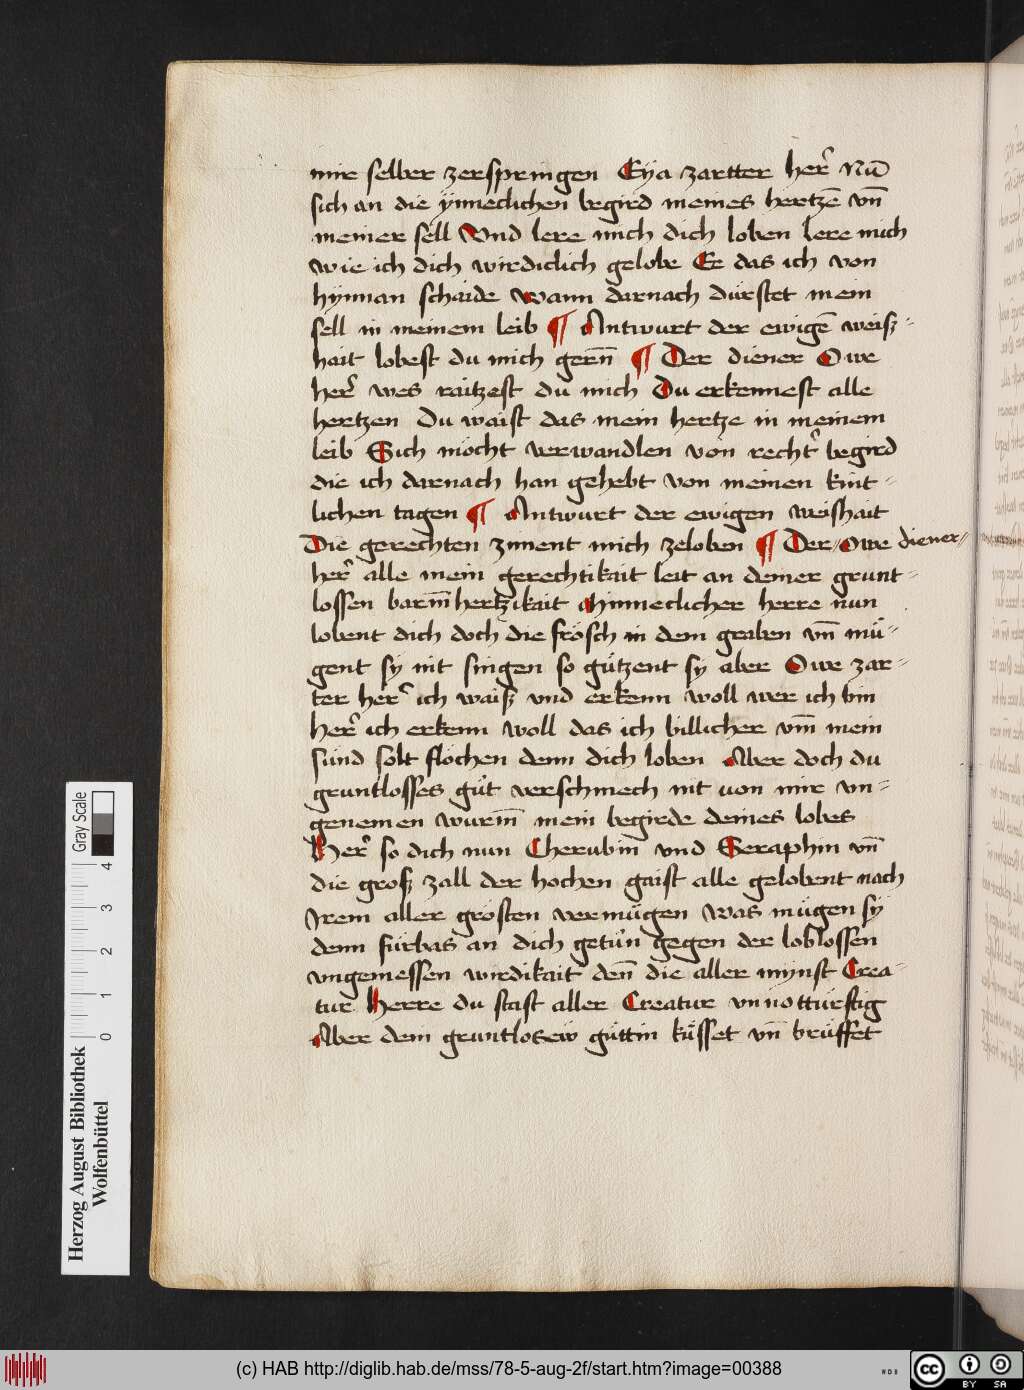 mir selber zerspringen Eya zartter her̉ Nū
sich an die ynneclichen begird meines hertzē vn̄
meiner sell Vnd lere mich dich loben lere mich
wie ich dich wirdiclich gelobe Ee das ich von
hynnan schaide wann darnach dúrstet mein
sell in meinem leib ¶ Antwurt der ewigē weiß-
hait lobest du mich gern̄ ¶ Der diener Owe
her̉ wes raitzest du mich Du erkennest alle
hertzen Du waist das mein hertze in meinem
leib Sich möcht verwandlen von recht̉ begird
die ich darnach han gehebt von meinen kint-
lichen tagen ¶ Antwurt der ewigen weishait
Die gerechten zment mich zeloben ¶ Der Owe diener
her̉ alle mein gerechtikait leit an deiner grunt-
lossen barm̄hertzikait Minneclicher herre nun
lobent dich doch die frösch in dem graben vn̄ mú-
gent sy nit singen so gútzent sy aber Owe zar-
ter her̉ ich waiß vnd erkenn woll wer ich bin
her̉ ich erkenn woll das ich billicher vm̄ mein
sünd solt flöchen denn dich loben Aber doch du
gruntlosses gůt verschmech nit von mir vn-
genemen wurm̄ mein begirde deines lobes
Her̉ so dich nun Cherubin vnd Seraphin vn̄
die groß zall der hochen gaist alle gelobent nach
Irem aller grösten vermúgen was múgen sy
denn fúrbas an dich getůn gegen der loblossen
vngemessen wirdikait den̄ die aller mynst Crea-
tur Herre du stast aller Creatur vnnotturftig
Aber dein gruntlosew gúttin kússet vn̄ brúffet
Gray Scale
0 1 2 3 4
Herzog August Bibliothek
Wolfenbüttel
(c) HAB http://diglib.hab.de/mss/78-5-aug-2f/start.htm?image=00388
WDB
cc BY SA